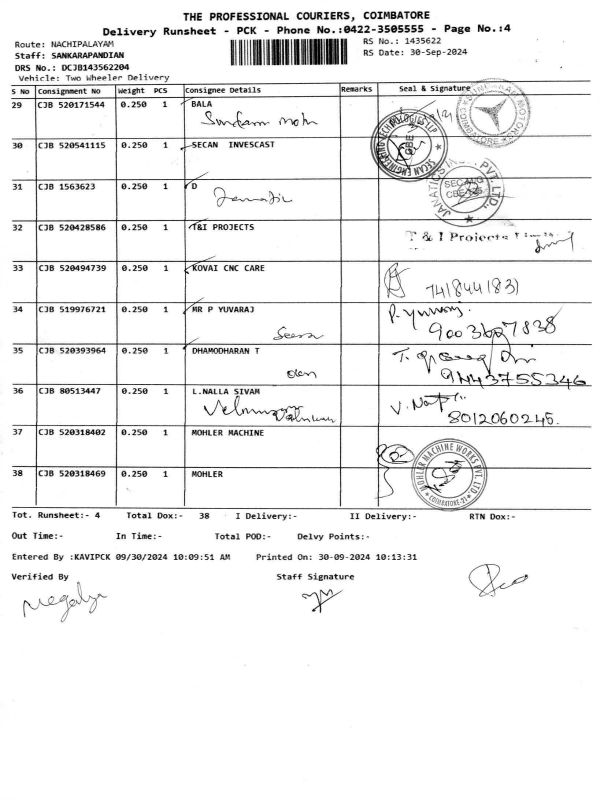 THE PROFESSIONAL COURIERS, COIMBATORE
Delivery Runsheet - PCK - Phone No.:0422-3505555 - Page No.:4
Route: NACHIPALAYAM
RS No.: 1435622
Staff: SANKARAPANDIAN
RS Date: 30-Sep-2024
DRS No.: DCJB143562204
Vehicle: Two Wheeler Delivery
S No Consignment No Weight PCS Consignee Details Remarks Seal & Signature
29 CJB 520171544 0.250 1 BALA
30 CJB 520541115 0.250 1 SECAN INVESCAST
SECAN ENGINEERING TECHNOLOGIES LLP
31 CJB 1563623 0.250 1 D
32 CJB 520428586 0.250 1 T&I PROJECTS
T & I Projects
33 CJB 520494739 0.250 1 KOVAI CNC CARE
34 CJB 519976721 0.250 1 MR P YUVARAJ
P. Yuvaraj
35 CJB 520393964 0.250 1 DHAMODHARAN T
36 CJB 80513447 0.250 1 L.NALLA SIVAM
8012060245.
37 CJB 520318402 0.250 1 MOHLER MACHINE
MOHLER MACHINE WORKS PVT. LTD
COIMBATORE-21
38 CJB 520318469 0.250 1 MOHLER
Tot. Runsheet:- 4 Total Dox:- 38 I Delivery:- II Delivery:- RTN Dox:-
Out Time:- In Time:- Total POD:- Delvy Points:-
Entered By :KAVIPCK 09/30/2024 10:09:51 AM Printed On: 30-09-2024 10:13:31
Verified By Staff Signature